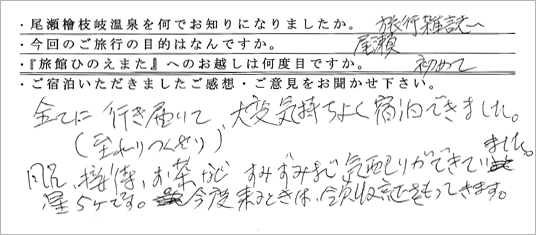 ・尾瀬檜枝岐温泉を何でお知りになりましたか。 旅行雑誌
・今回のご旅行の目的はなんですか。 尾瀬
・『旅館ひのえまた』へのお越しは何度目ですか。 初めて
・ご宿泊いただきましたご感想・ご意見をお聞かせ下さい。
全てに行き届いて、大変気持ちよく宿泊できました。
(至れりつくせり)
風呂、接待、お茶など すみずみまで気配りができていました。
満5ケです。 今度来るときは、領収証をもってきます。